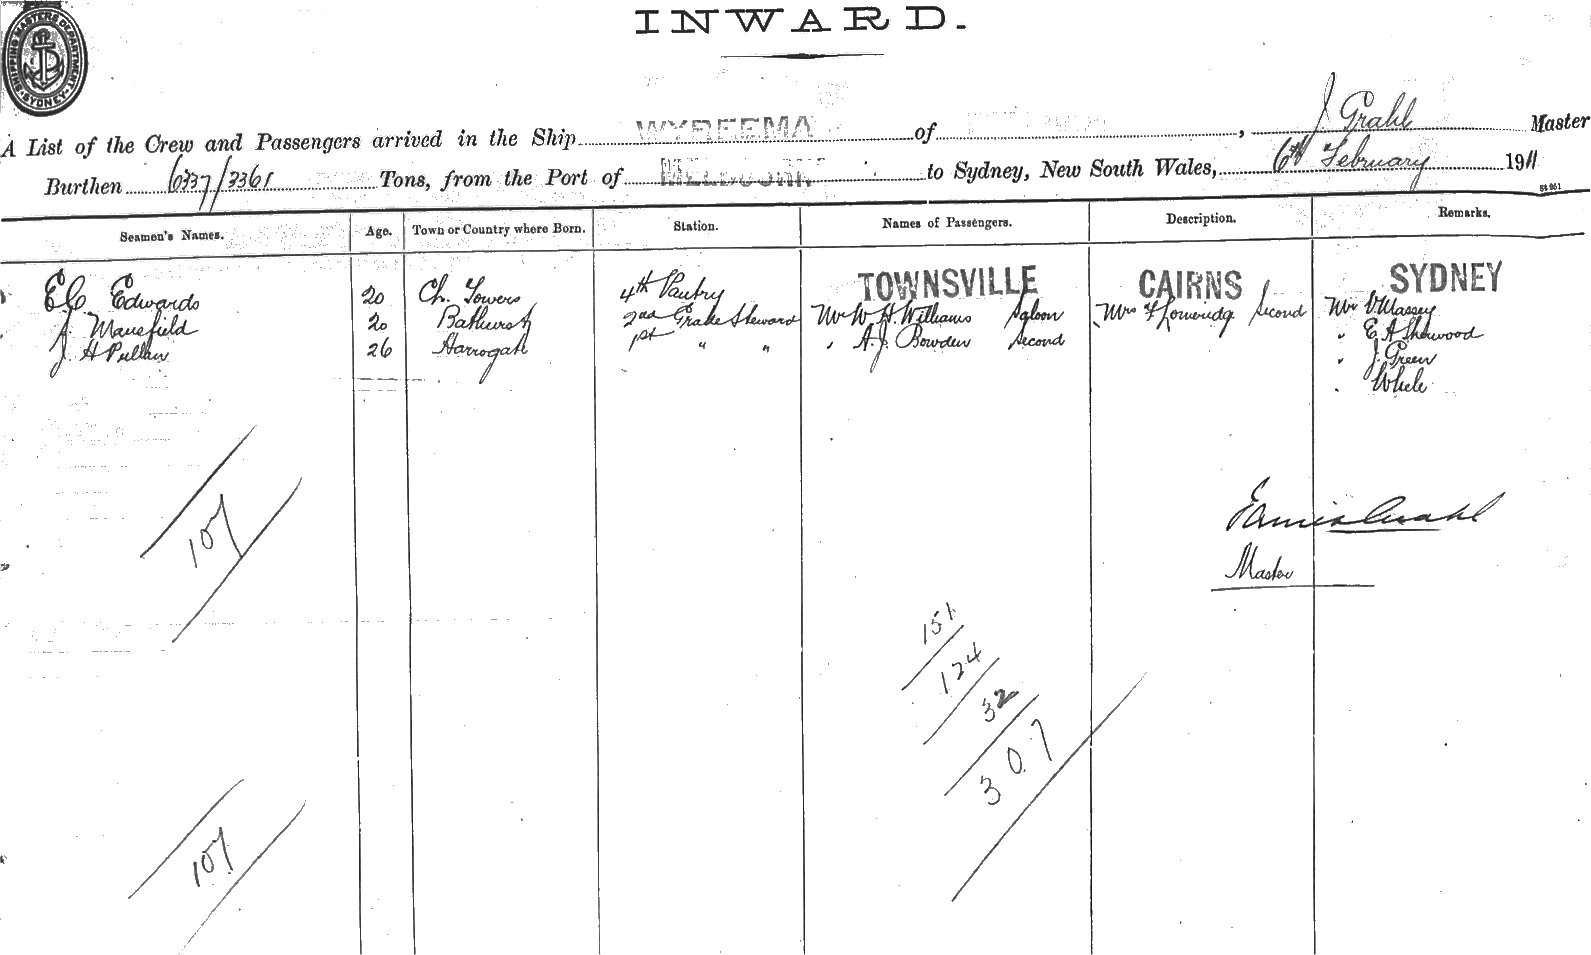 SHIPPING MASTERS DEPARTMENT
SYDNEY
INWARD.
A List of the Crew and Passengers arrived in the Ship WYREEMA of , J Grahl Master
Burthen 6337/3361 Tons, from the Port of MELBOURNE to Sydney, New South Wales, 6th February 1911
St 951
Seamen's Names. Age. Town or Country where Born. Station. Names of Passengers. Description. Remarks.
TOWNSVILLE CAIRNS SYDNEY
E C Edwards 20 Ch. Towers 4th Pantry
J. Mansfield 20 Bathurst 2nd Steward Mr W. H. Williams Saloon Mrs Second Mr V Massey
J. H Pullan 26 Harrogate 1st " " " A. J. Bowden Second " E A Sherwood
" J. Green
"
107
James Grahl
Master
151
124
32
307
107